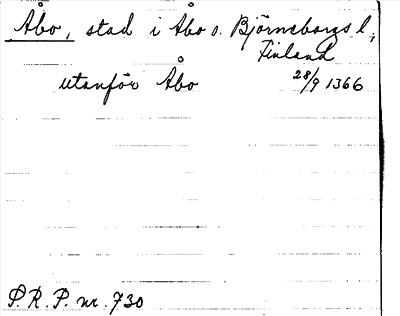 Åbo, stad i Åbo o. Björneborgs l,
Finland
utanför Åbo 28/9 1366
P.R.P. nr. 730